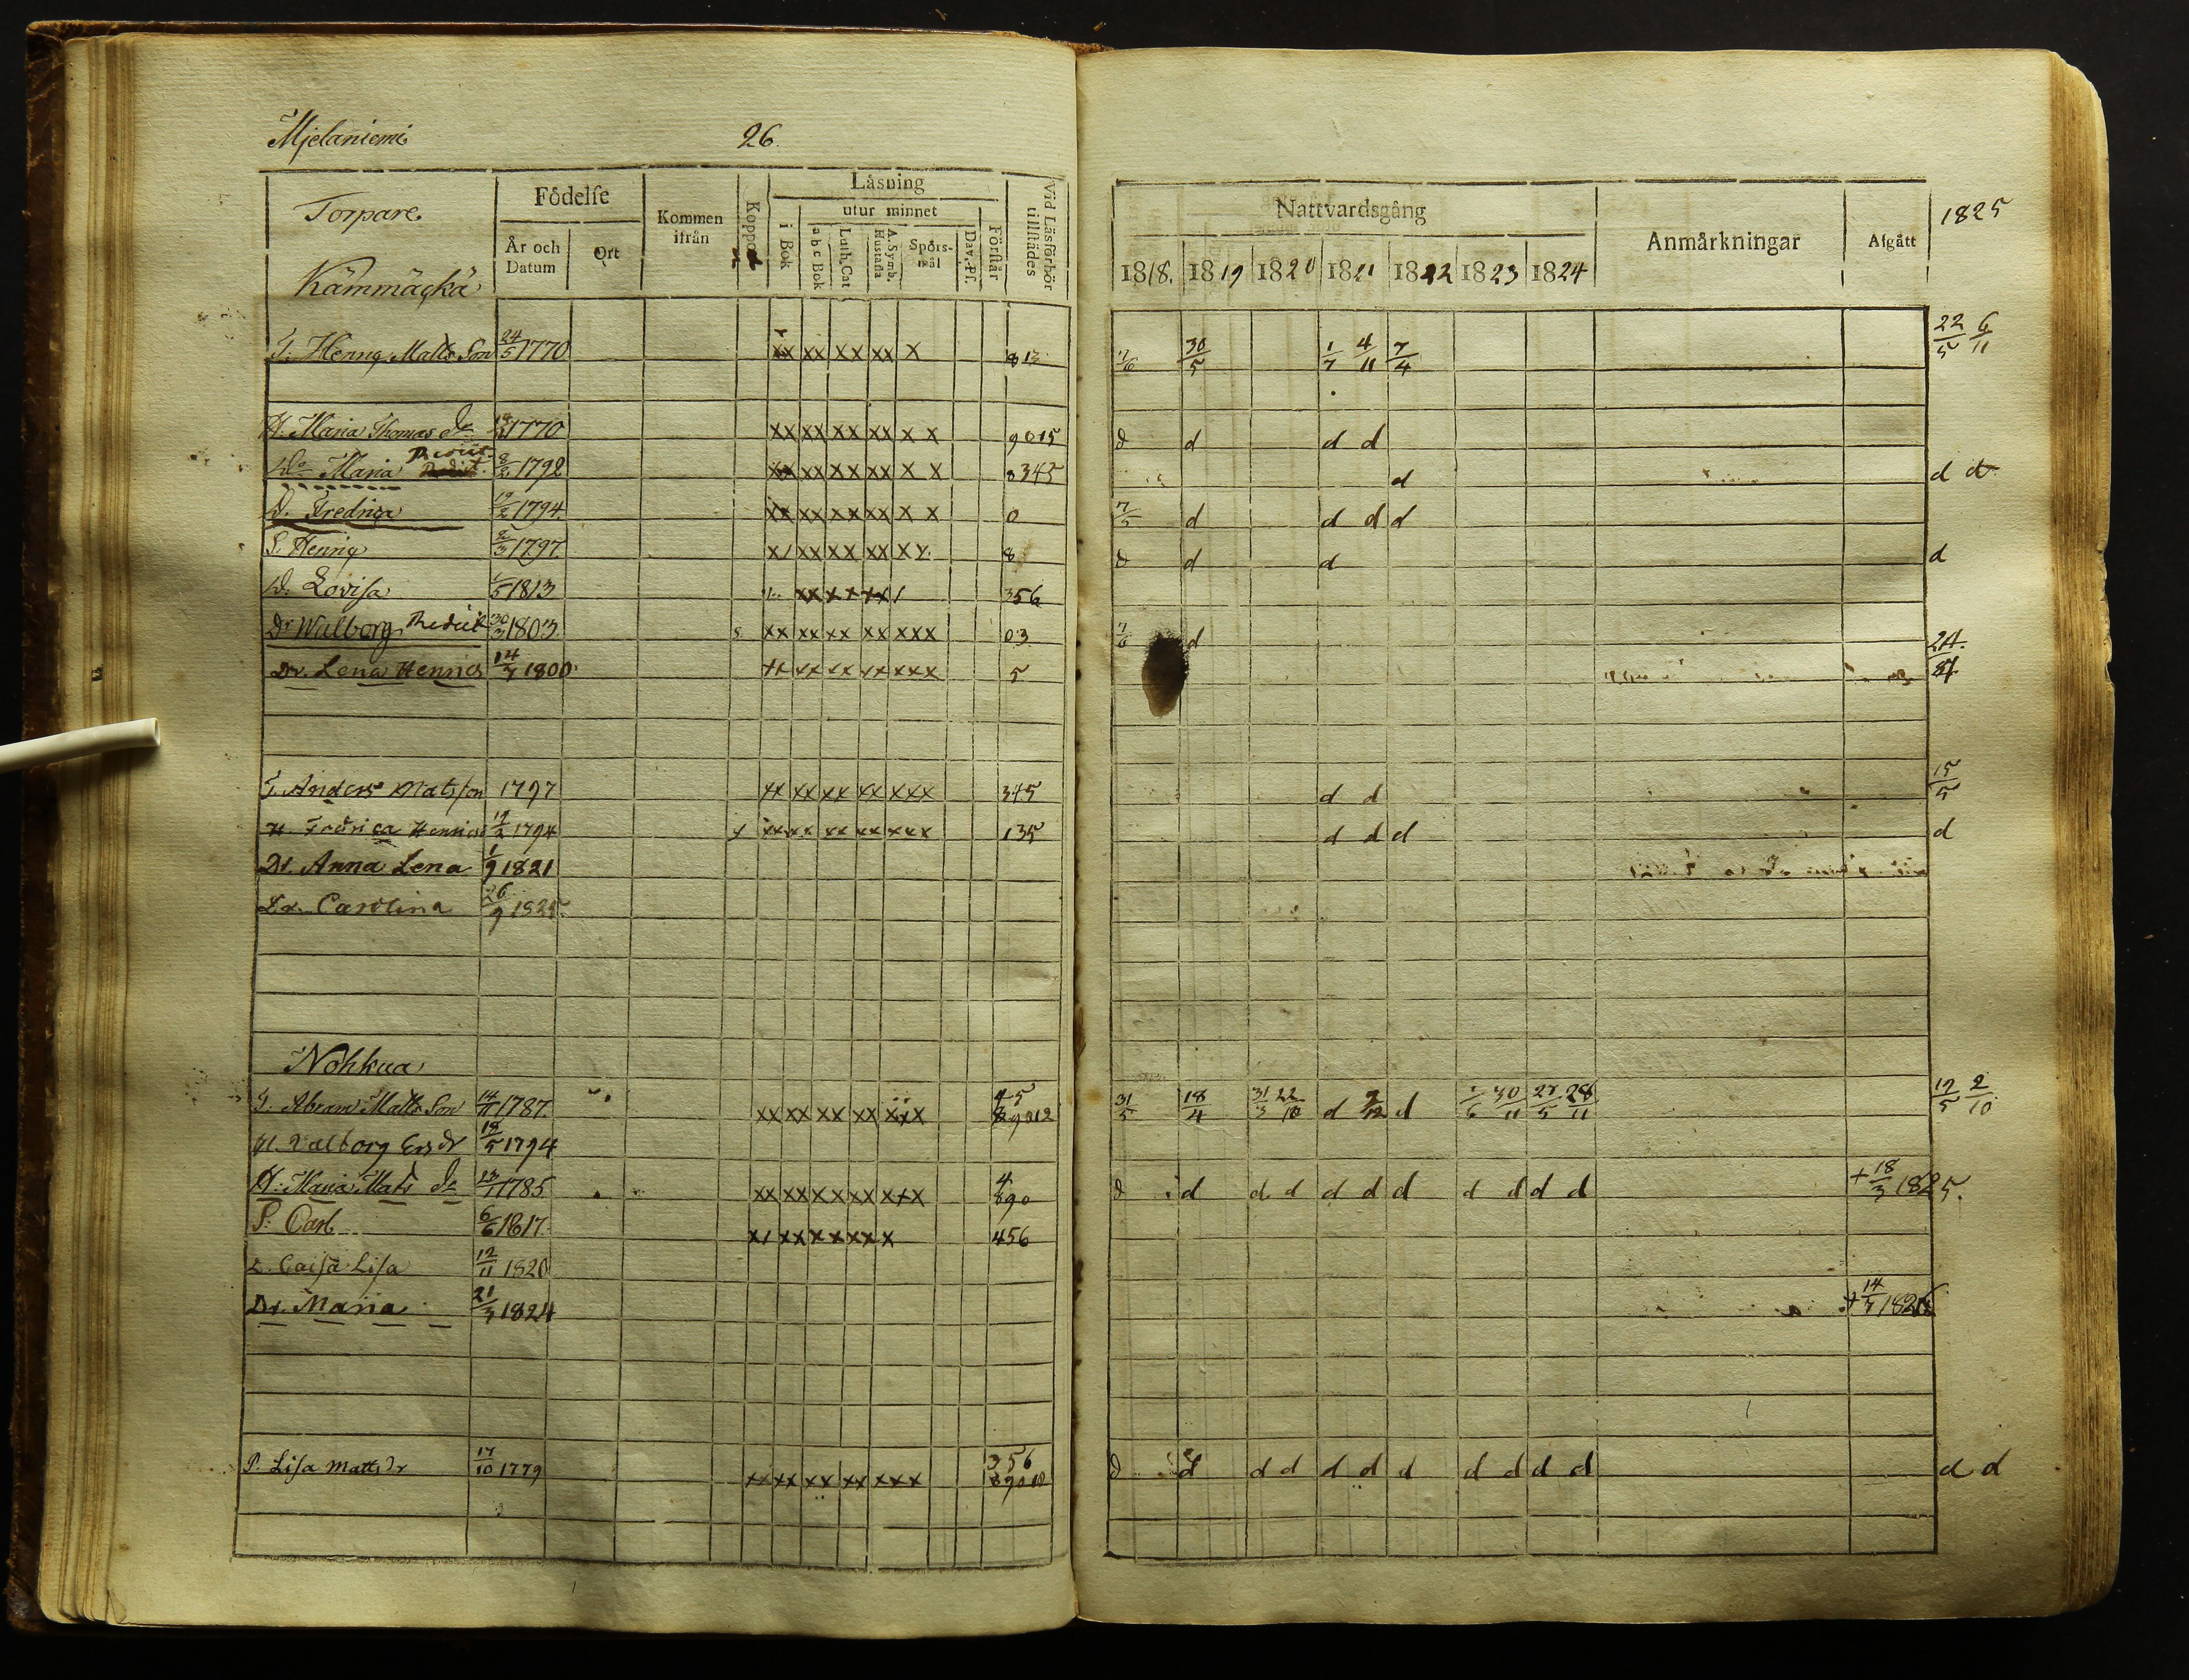 Mjelaniemi 26.
Torpare
Kämmäckä
Födelse
År och Datum
Ort
Kommen ifrån
Koppor
Läsning
utur minnet
i Bok
a b c Bok
Luth. Cat
A. Symb. Hustafla
Spörsmål
Dav. Ps.
Förstår
Vid Läsförhör tillstädes
Nattvardsgång
1818. 1819 1820 1821 1822 1823 1824
Anmärkningar
Afgått
1825
T. Henriq Matts Son 24/5 1770 xx xx xx xx x 813 7/6 30/5 1/7 4/11 7/4 22/5 6/11
H. Maria Thomas dr 1770 xx xx xx xx x x 9015 d d d d
Dr Maria 8/2 1792 xx xx xx xx x x 0345 d d d
D. Fredriqa 19/2 1794. xx xx xx xx x x 0 7/5 d d d d
S. Henriq 1797 x/ xx xx xx x x 8 d d d d
D. Lovisa 1813 xx x x xx / 356
Dr Walborg 30/3 1803 xx xx xx xx xxx 03 7/6 d
Dr. Lena Henrics 14/7 1800 xx xx xx xx xxx 5 24.
T. Anders Matsson 1797 xx xx xx xx xxx 345 d d 15/5
H. Fredrica Henrics 19/2 1794 xx xx xx xx xxx 135 d d d d
Dr. Anna Lena 1/9 1821
Dr. Carolina 26/9 1825.
Nohkua
T. Abram Matts Son 14/11 1787. xx xx xx xx xxx 45 89012 31/5 18/4 31/3 22/10 d 2/12 d 30/11 28/11 12/5 2/10
H. Valborg Ersdr 18/5 1794
H: Maria Mats dr 23/1 1785 xx xx xx xx xxx 4 890 d d d d d d d d d d d + 18/3 1825.
S: Carl 6/6 1817. x/ xx xx xx x 456
D. Caisa Lisa 12/11 1820
Dr. Maria 21/3 1824 + 14/7 182
P. Lisa Mattsdr 17/10 1779 xx xx xx xx xxx 356 89010 d d d d d d d d d d d d d